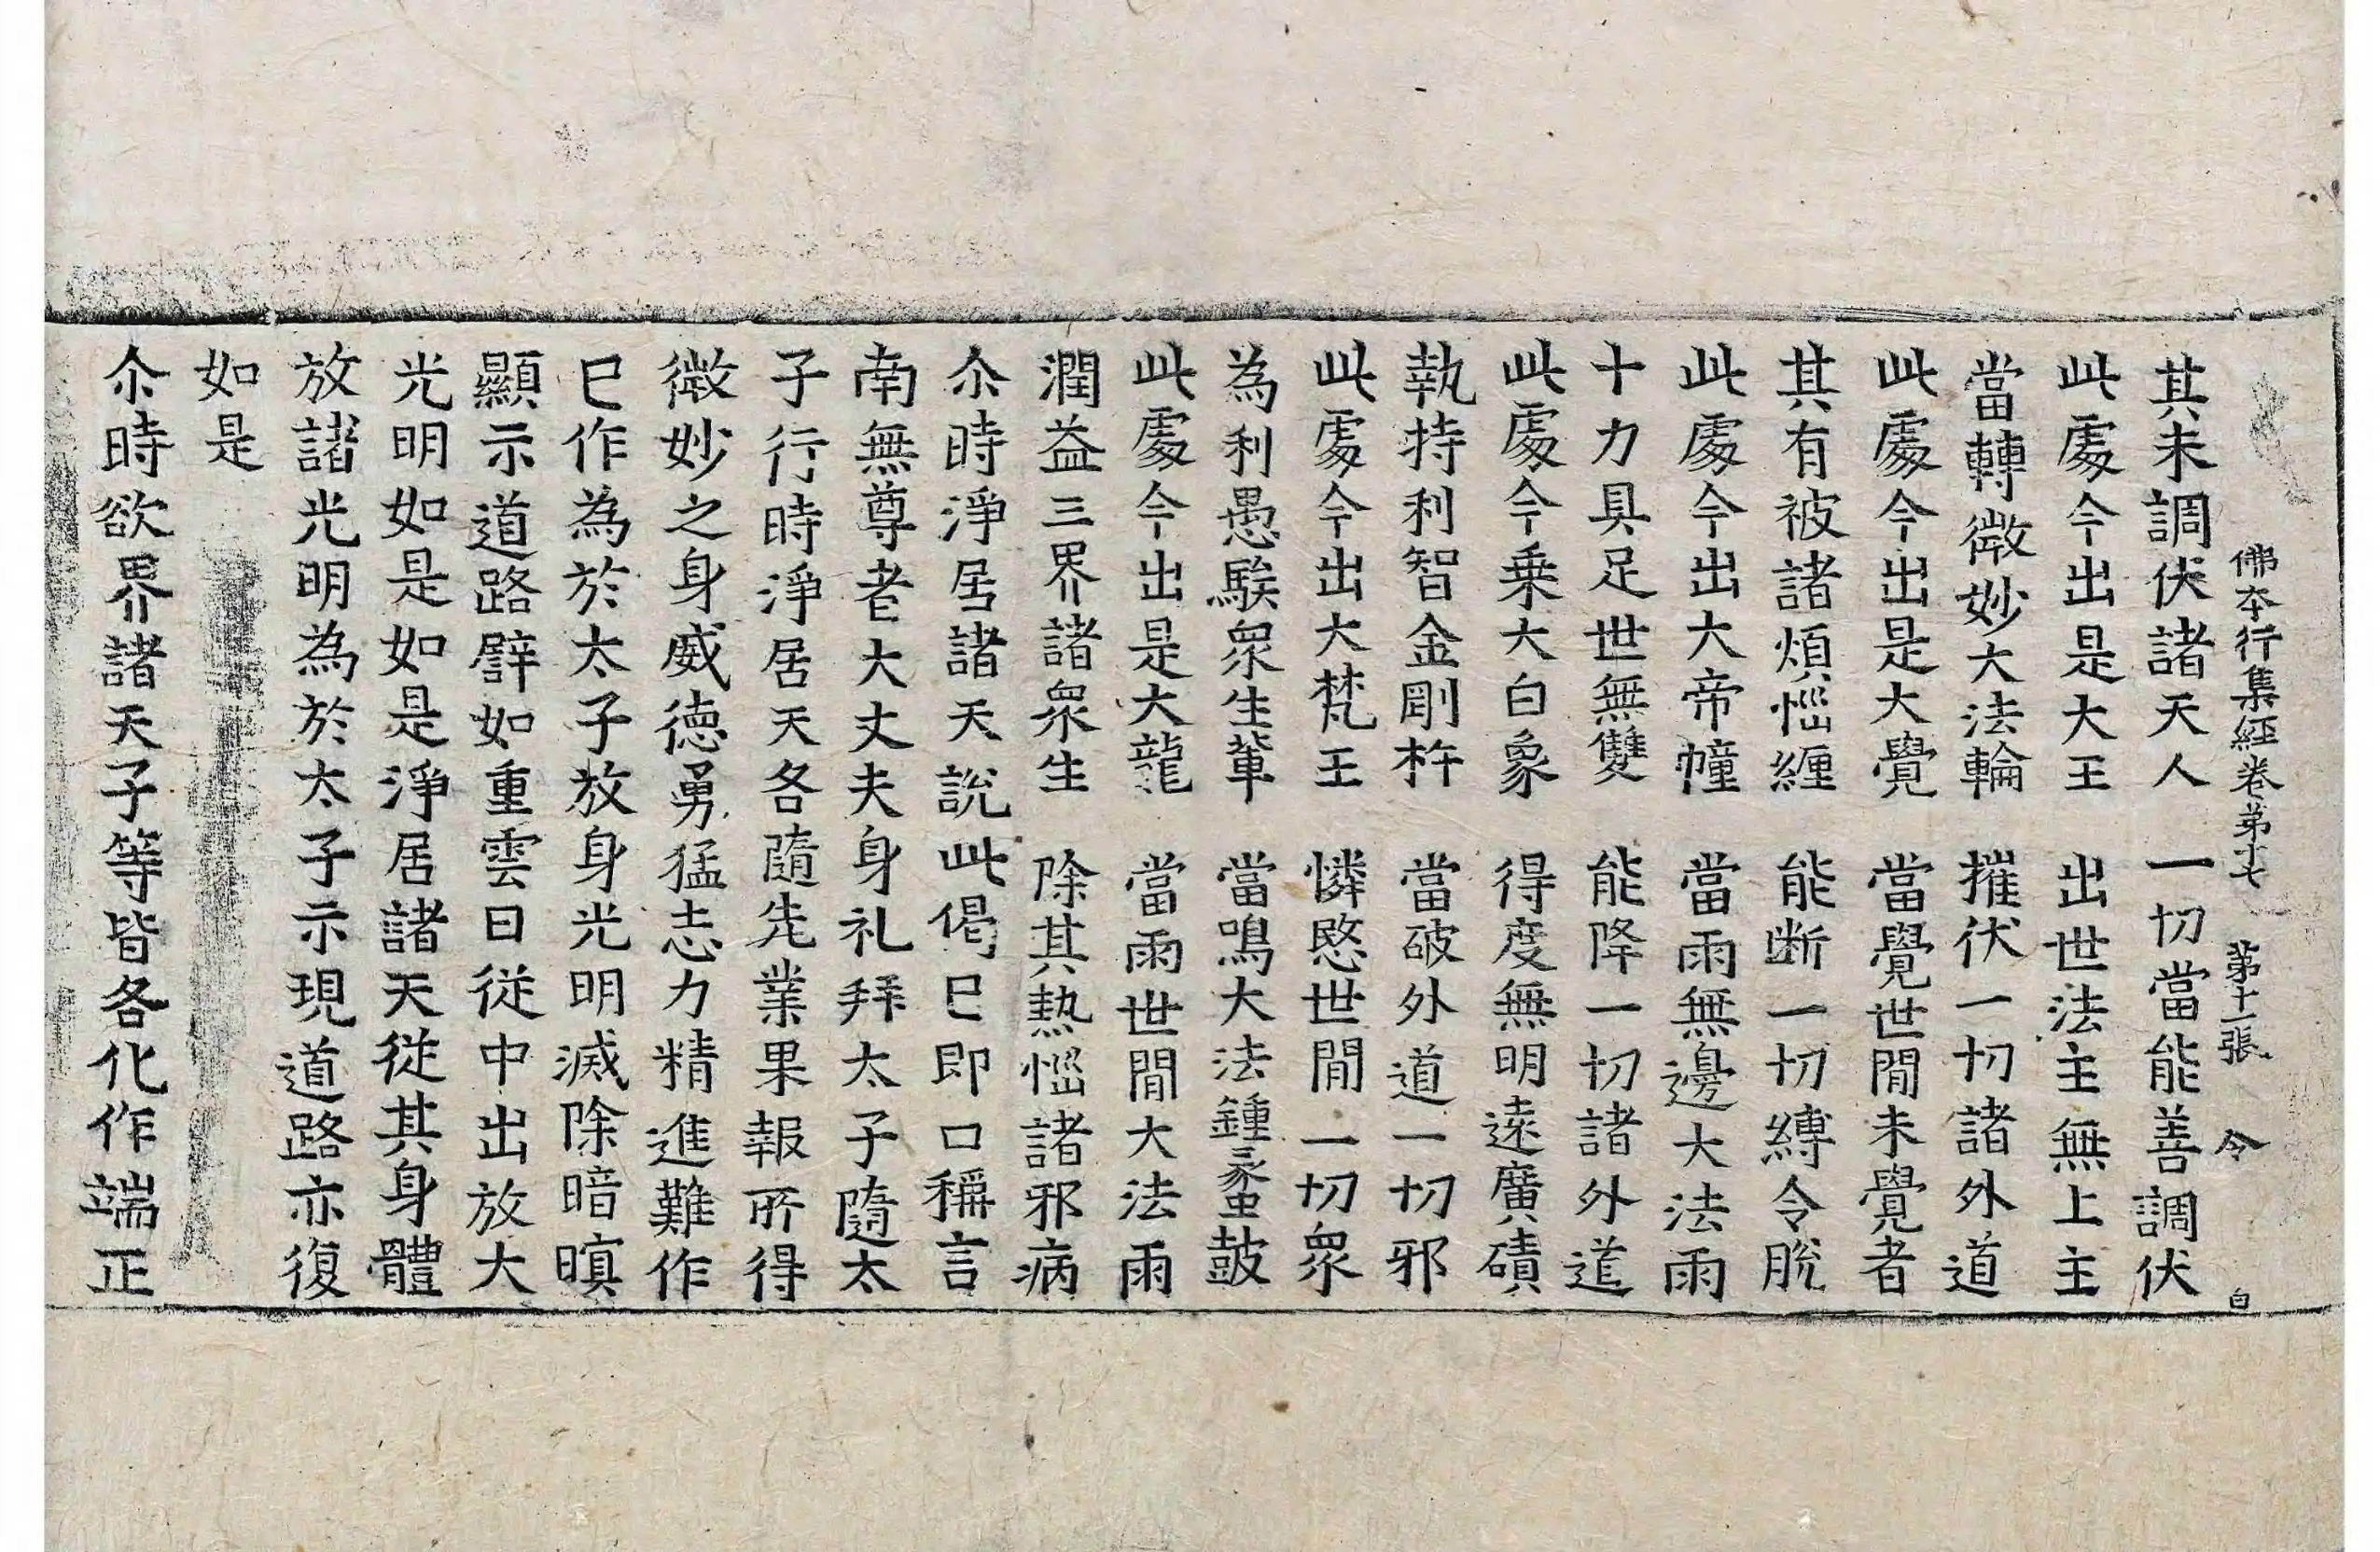 佛本行集經卷第十七 第十一張 令 白
其未調伏諸天人 一切當能善調伏
此處今出是大王 出世法主無上主
當轉微妙大法輪 摧伏一切諸外道
此處今出是大覺 當覺世間未覺者
其有被諸煩惱纏 能斷一切縛令脫
此處今出大帝幢 當雨無邊大法雨
十力具足世無雙 能降一切諸外道
此處今乘大白象 得度無明遠廣磧
執持利智金剛杵 當破外道一切邪
此處今出大梵王 憐愍世間一切眾
為利愚騃眾生輩 當鳴大法鍾蠡鼓
此處今出是大龍 當雨世間大法雨
潤益三界諸眾生 除其熱惱諸邪病
尒時淨居諸天說此偈已即口稱言
南無尊者大丈夫身礼拜太子隨太
子行時淨居天各隨先業果報所得
微妙之身威德勇猛志力精進難作
已作為於太子放身光明滅除暗瞑
顯示道路譬如重雲日從中出放大
光明如是如是淨居諸天從其身體
放諸光明為於太子示現道路亦復
如是
尒時欲界諸天子等皆各化作端正